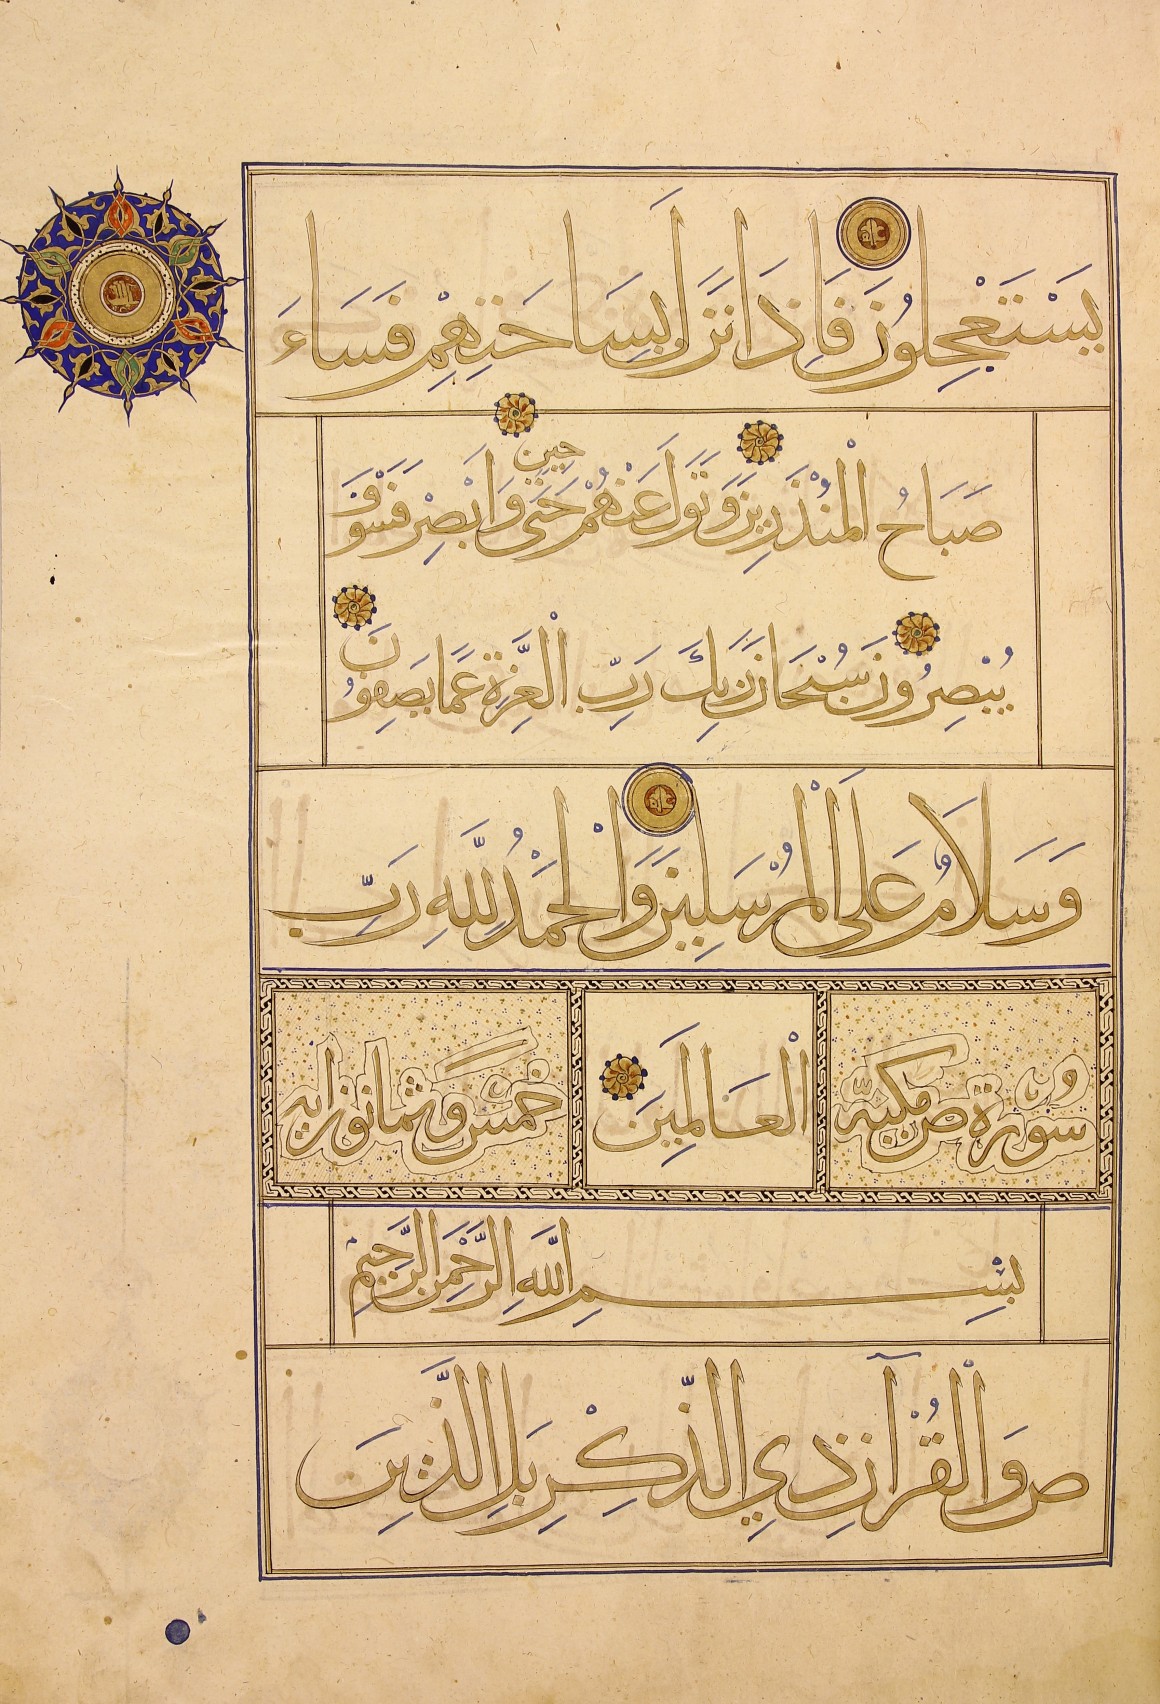 يَسْتَعْجِلُونَ فَإِذَا نَزَلَ بِسَاحَتِهِمْ فَسَاءَ
صَبَاحُ الْمُنْذَرِينَ وَتَوَلَّ عَنْهُمْ حَتَّى حِينٍ وَأَبْصِرْ فَسَوْفَ
يُبْصِرُونَ سُبْحَانَ رَبِّكَ رَبِّ الْعِزَّةِ عَمَّا يَصِفُونَ
وَسَلَامٌ عَلَى الْمُرْسَلِينَ وَالْحَمْدُ لِلَّهِ رَبِّ
الْعَالَمِينَ
سورة ص مكية
خمس وثمانون آية
بِسْمِ اللَّهِ الرَّحْمَنِ الرَّحِيمِ
ص وَالْقُرْآنِ ذِي الذِّكْرِ بَلِ الَّذِينَ